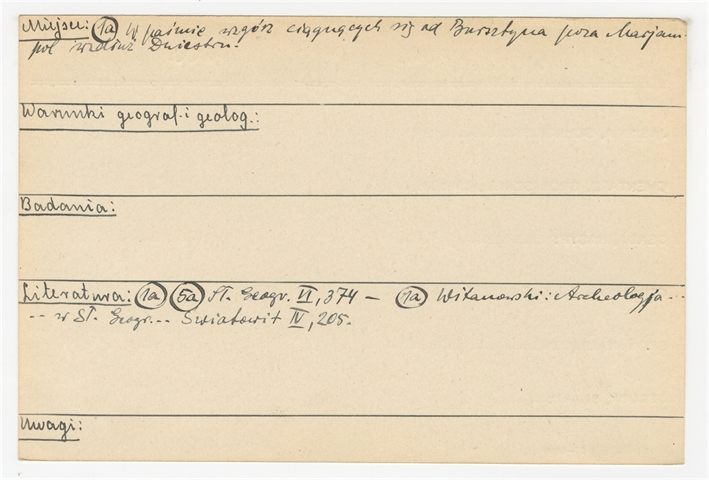 Miejsc: 1a W paśmie wzgórz ciągnących się od Bursztyna poza Marjam-
pol wzdłuż Dniestru.
Warunki geograf. i geolog.:
Badania:
Literatura: 1a 5a Sł. Geogr. VI, 374 – 1a Witanowski: Archeologja ...
... w Sł. Geogr... Światowit IV, 205.
Uwagi: